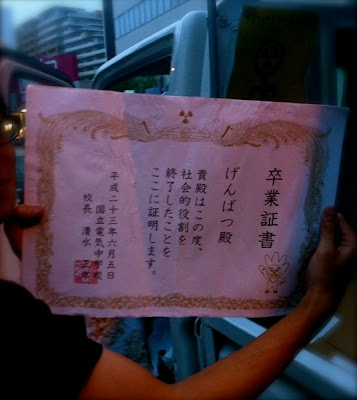 卒業証書
げんぱつ殿
貴殿はこの度、
社会的役割を
終了したことを
ここに証明します。
平成二十三年六月五日
国立電気中学校
校長 清水 正